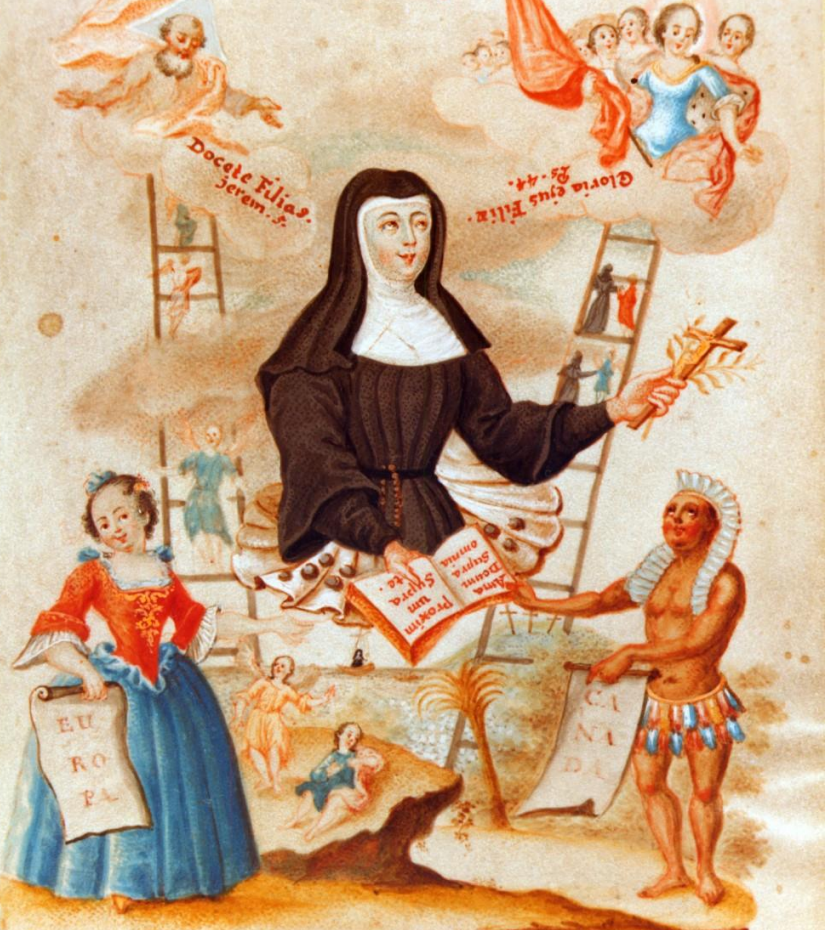 Docete Filias.
jerem. 9.
Gloria ejus Filiæ.
Ps. 44.
Ama
Deum
Supra
omnia
Proxim
um
Supra
te.
EU
RO
PA
CA
NA
DA